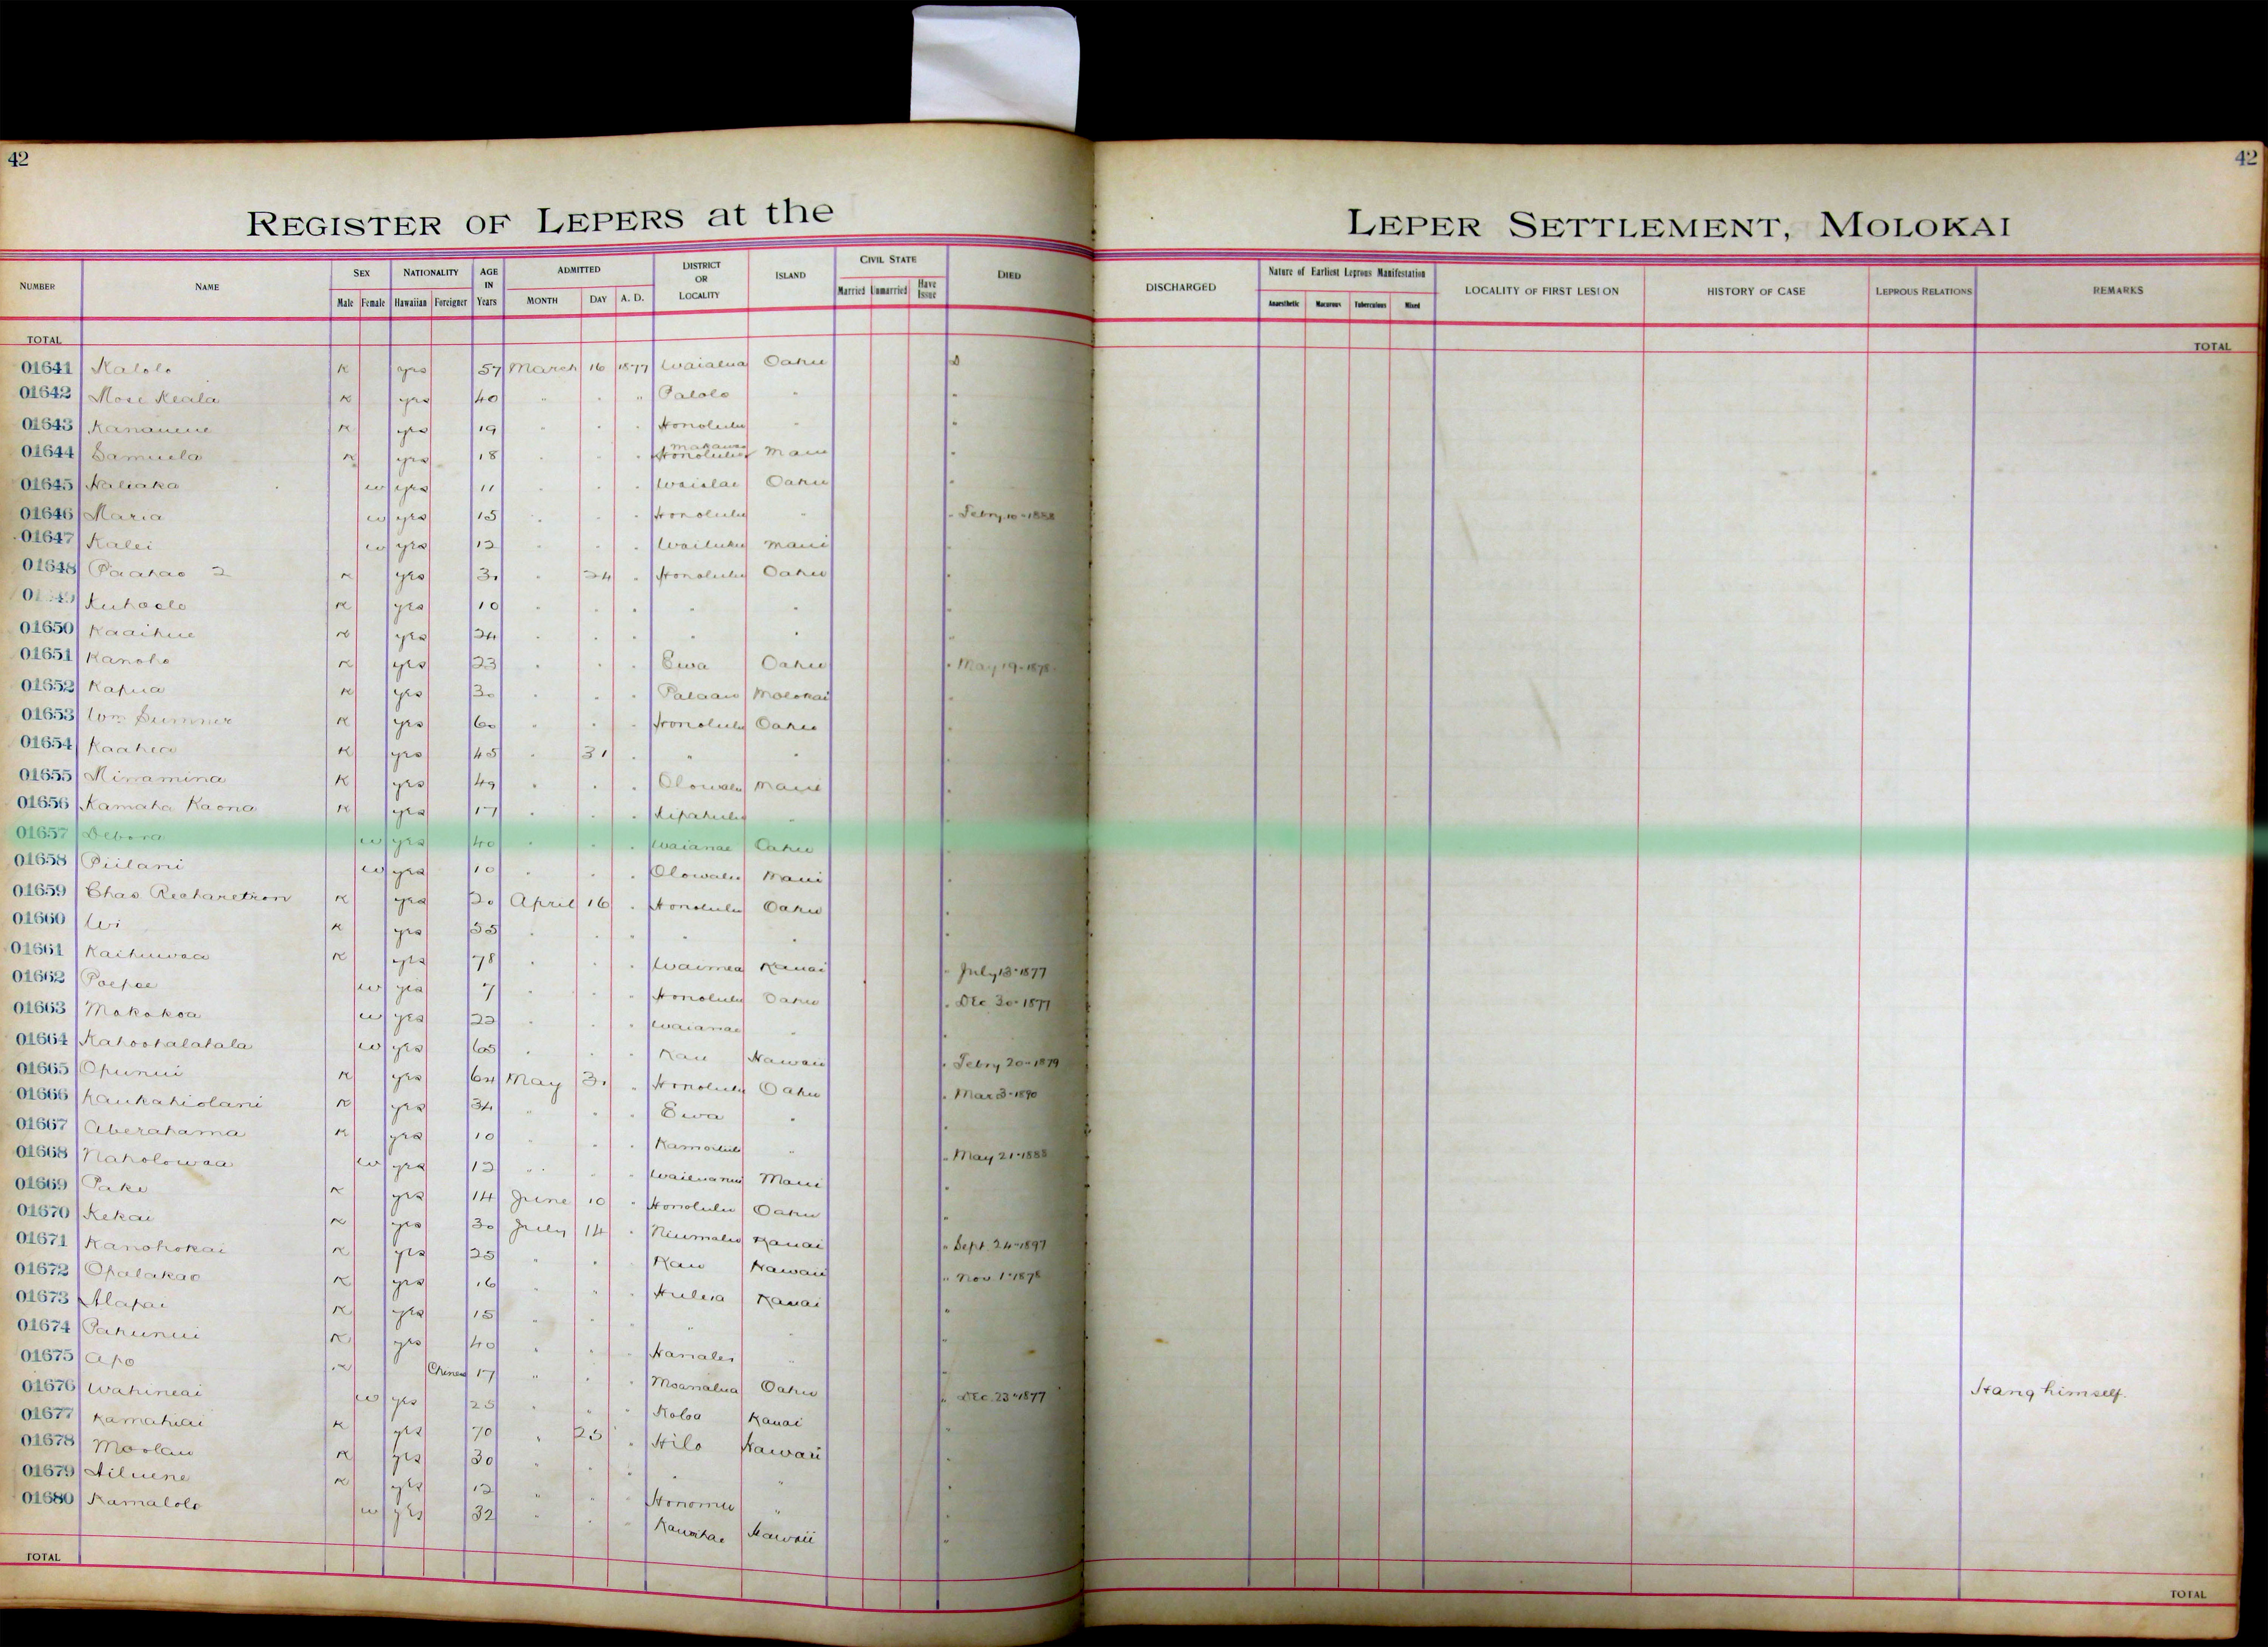 42
42
REGISTER OF LEPERS at the LEPER SETTLEMENT, MOLOKAI
NUMBER NAME SEX NATIONALITY AGE IN Years ADMITTED DISTRICT OR LOCALITY ISLAND CIVIL STATE DIED DISCHARGED Nature of Earliest Leprous Manifestation LOCALITY OF FIRST LESION HISTORY OF CASE LEPROUS RELATIONS REMARKS
Male Female Hawaiian Foreigner MONTH DAY A. D. Married Unmarried Have Issue Anaesthetic Macurous Tuberculous Mixed
TOTAL TOTAL
01641 Kalolo K yes 57 March 16 1877 Waialua Oahu D
01642 Mose Keala K yes 40 " " " Palolo " "
01643 K yes 19 " " " Honolulu " "
01644 Samuela K yes 18 " " " Makawao Honolulu Maui "
01645 Naliaka w yes 11 " " " Waialae Oahu "
01646 Maria w yes 15 " " " Honolulu " " Febry 10-1888
01647 Kalei w yes 12 " " " Wailuku Maui "
01648 Paahao 2 K yes 30 " 24 " Honolulu Oahu "
Kuhaelo K yes 10 " " " " " "
01650 Kaaihue K yes 24 " " " " " "
01651 Kanoho K yes 23 " " " Ewa Oahu " May 19-1878
01652 Kapua K yes 30 " " " Palaau Molokai "
01653 Wm Sumner K yes 60 " " " Honolulu Oahu "
01654 Kaahea K yes 45 " 31 " " " "
01655 Minamina K yes 49 " " " Olowalu Maui "
01656 Kamaha Kaona K yes 17 " " " Kipahulu " "
01657 Debora w yes 40 " " " Waianae Oahu "
01658 Piilani w yes 10 " " " Olowalu Maui "
01659 Chas Richardson K yes 20 April 16 " Honolulu Oahu "
01660 Wi K yes 55 " " " " " "
01661 Kaihuwaa K yes 78 " " " Waimea Kauai " July 13-1877
01662 Poepoe w yes 7 " " " Honolulu Oahu " Dec 30-1877
01663 Makakoa w yes 22 " " " Waianae " "
01664 Kahoohalahala w yes 65 " " " Kau Hawaii " Febry 20-1879
01665 Opunui K yes 64 May 31 " Honolulu Oahu " Mar 3-1890
01666 Kaukahiolani K yes 34 " " " Ewa " "
01667 Aberahama K yes 10 " " " Kamoiliili " " May 21-1888
01668 Naholowaa w yes 12 " " " Wailuanui Maui "
01669 Pake K yes 14 June 10 " Honolulu Oahu "
01670 Kekai K yes 30 July 14 " Niumalu Kauai " Sept. 24-1897
01671 Kanohokai K yes 25 " " " Kau Hawaii " Nov. 1-1878
01672 Opalakao K yes 16 " " " Huleia Kauai "
01673 Alapai K yes 15 " " " " " "
01674 Pahunui K yes 40 " " " Hanalei " "
01675 Apo K Chinese 17 " " " Moanalua Oahu " Dec. 23-1877 Hang himself.
01676 Wahineai w yes 25 " " " Koloa Kauai "
01677 Kamahiai K yes 70 " 25 " Hilo Hawaii "
01678 Moolau K yes 30 " " " " " "
01679 Ailuene K yes 12 " " " Honomu " "
01680 Kamalolo w yes 32 " " " Kawaihae Hawaii "
TOTAL TOTAL